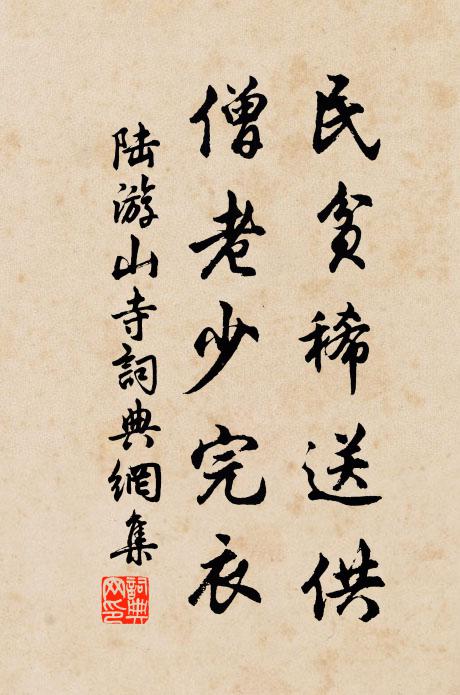 民贫稀送供
僧老少完衣
陆游山寺詞典網集
詞典網印